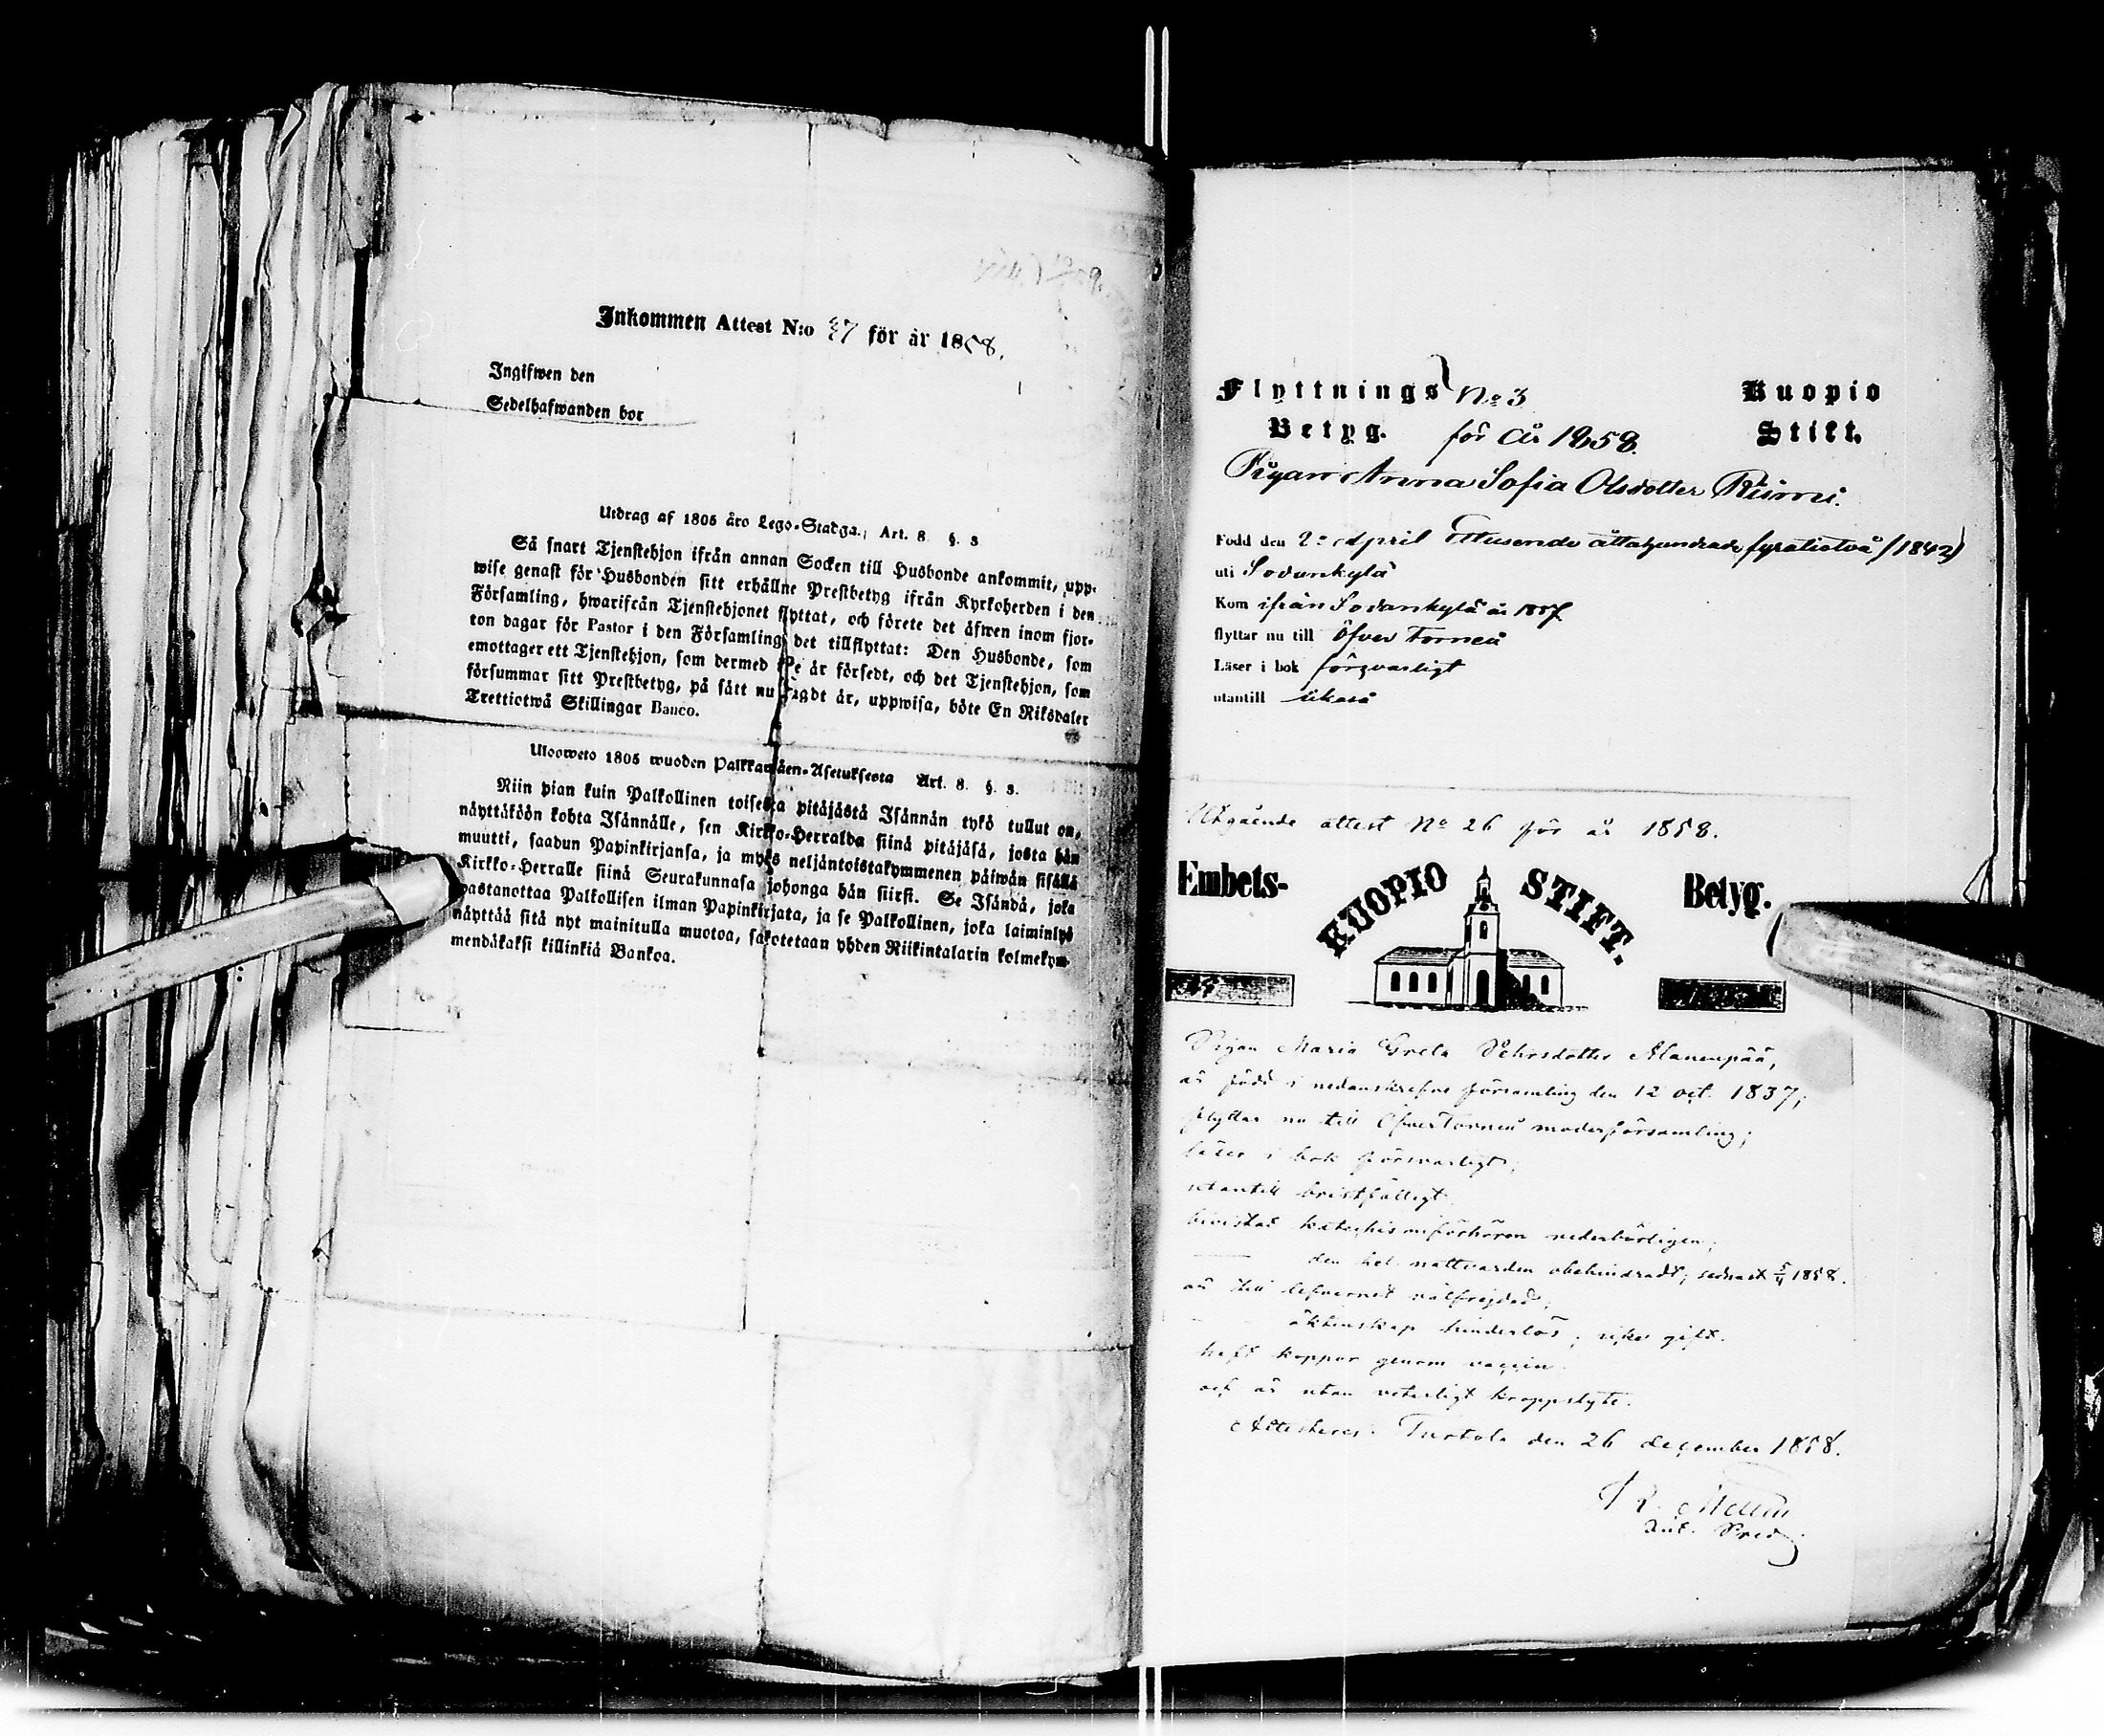 Inkommen Attest N:o 37 för år 1858.
Ingifwen den
Sedelhafwanden bor
Utdrag af 1805 års Lego-Stadga, Art. 8 §. 3
Så snart Tjenstehjon ifrån annan Socken till Husbonde ankommit, upp-
wise genast för Husbonden sitt erhållne Prestbetyg ifrån Kyrkoherden i den
Församling, hwarifrån Tjenstehjonet flyttat, och förete det äfwen inom fjor-
ton dagar för Pastor i den Församling det tillflyttat: Den Husbonde, som
emottager ett Tjenstehjon, som dermed är försedt, och det Tjenstehjon, som
försummar sitt Prestbetyg, på sätt nu sagdt är, uppwisa, böte En Riksdaler
Trettiotwå Skillingar Banco.
Ulosweto 1805 wuoden Palkkawäen-Asetuksesta Art. 8. §. 3.
Niin pian kuin Palkollinen toisesta pitäjästä Isännän tykö tullut on,
näyttäköön kohta Isännälle, sen Kirkko-Herralda siinä pitäjäsä, josta hän
muutti, saadun Papinkirjansa, ja myös neljäntoistakymmenen päiwän sisällä
Kirkko-Herralle siinä Seurakunnasa johonga hän siirsi. Se Isändä, joka
wastanottaa Palkollisen ilman Papinkirjata, ja se Palkollinen, joka laiminlyö
näyttää sitä nyt mainitulla muotoa, sakotetaan yhden Riikintalarin kolmekym-
mendäkaksi killinkiä Bankoa.
Flyttnings No 3 Kuopio
Betyg. för år 1858. Stift.
Pigan Anna Sofia Olsdotter
Född den 2 April Ettusende åttahundrade fyratiotvå (1842)
uti Sodankylä
Kom ifrån Sodankylä år 1857
flyttar nu till Öfver Torneå
Läser i bok försvarligt
utantill likaså
Utgående attest No 26 för år 1858.
Embets- KUOPIO STIFT. Betyg.
Pigan Maria Greta Pehrsdotter Alanenpää,
är född i nedanskrefne församling den 12 oct. 1837;
flyttar nu till ÖfverTorneå moderförsamling;
läser i bok försvarligt;
utantill bristfälligt
bivistat katechismiförhören vederbörligen;
den hel. nattvarden obehindradt; sednast 5/4 1858.
är till lefvernet välfrejdad;
äktenskap hinderlös, icke gift.
haft koppor genom vaccin
och är utan veterligt kroppslyte.
Attesteras. Turtola den 26 december 1858.
Mellin